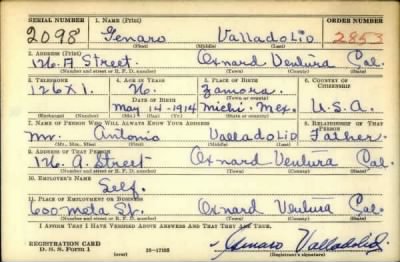 SERIAL NUMBER 1. NAME (Print) ORDER NUMBER
2098 Genaro Valladolid 2853
(First) (Middle) (Last)
2. ADDRESS (Print)
126 A Street. Oxnard Ventura Cal.
(Number and street or R. F. D. number) (Town) (County) (State)
3. TELEPHONE 4. AGE IN YEARS 5. PLACE OF BIRTH 6. COUNTRY OF CITIZENSHIP
126X1. 26. Zamora.
DATE OF BIRTH (Town or county)
May 14-1914 Michi. Mex. U.S.A.
(Exchange) (Number) (Mo.) (Day) (Yr.) (State or country)
7. NAME OF PERSON WHO WILL ALWAYS KNOW YOUR ADDRESS 8. RELATIONSHIP OF THAT PERSON
Mr. Antonio Valladolid Father.
(Mr., Mrs., Miss) (First) (Middle) (Last)
9. ADDRESS OF THAT PERSON
126. A. Street Oxnard Ventura Cal.
(Number and street or R. F. D. number) (Town) (County) (State)
10. EMPLOYER'S NAME
Self.
11. PLACE OF EMPLOYMENT OR BUSINESS
600 Meta St. Oxnard Ventura Cal.
(Number and street or R. F. D. number) (Town) (County) (State)
I AFFIRM THAT I HAVE VERIFIED ABOVE ANSWERS AND THAT THEY ARE TRUE.
REGISTRATION CARD
D. S. S. FORM 1 16-17105 Genaro Valladolid
(Registrant's signature)